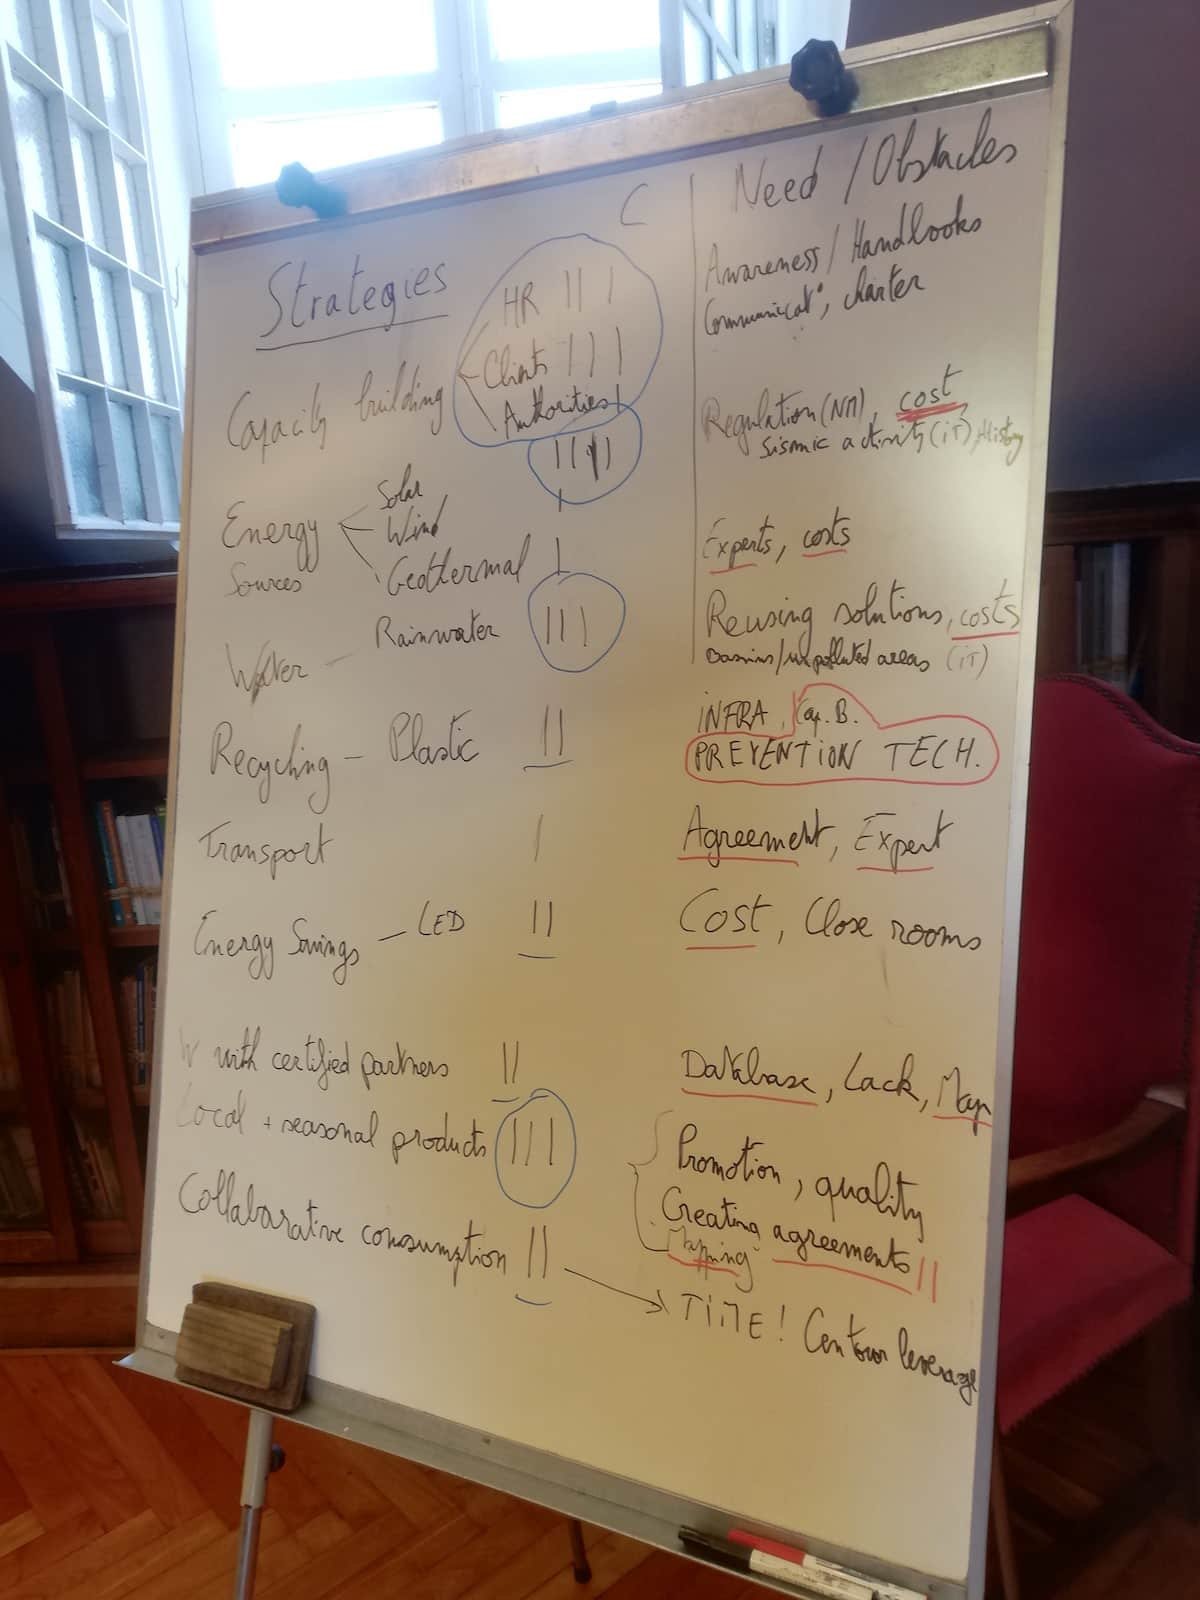 Strategies
C
Need / Obstacles
HR ll l
Capacity building
Clients lll
Authorities l
Awareness / Handbooks
Communicat°, charter
llll
Regulation (NM), cost
Seismic activity (iT), History
Energy
Sources
Solar
Wind l
Geothermal l
Experts, costs
Water - Rainwater lll
Reusing solutions, costs
Bassins/unpolluted areas (iT)
Recycling - Plastic ll
iNFRA, Cap. B.
PREVENTiON TECH.
Transport l
Agreement, Expert
Energy Savings - LED ll
Cost, Close rooms
W with certified partners ll
Database, Lack, Map
Local + seasonal products lll
Promotion, quality
Creating agreements ll
Mapping
Collaborative consumption ll
TiME! leverage